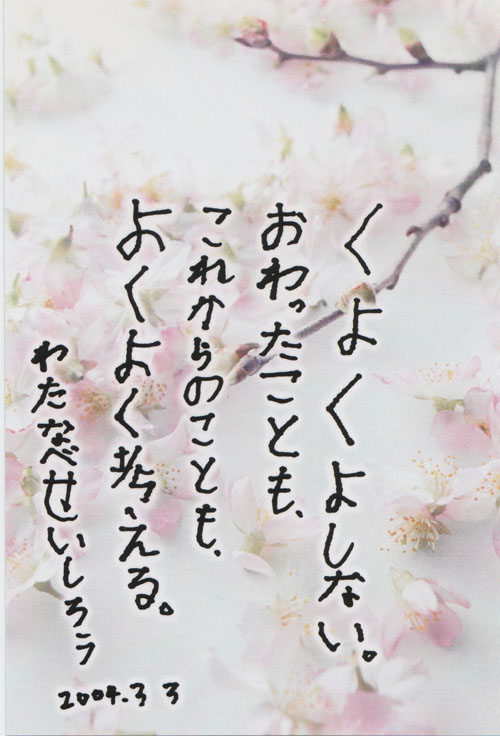 くよくよしない。
おわったことも、
これからのことも、
よくよく考える。
わたなべせいしろう
2004.3 3